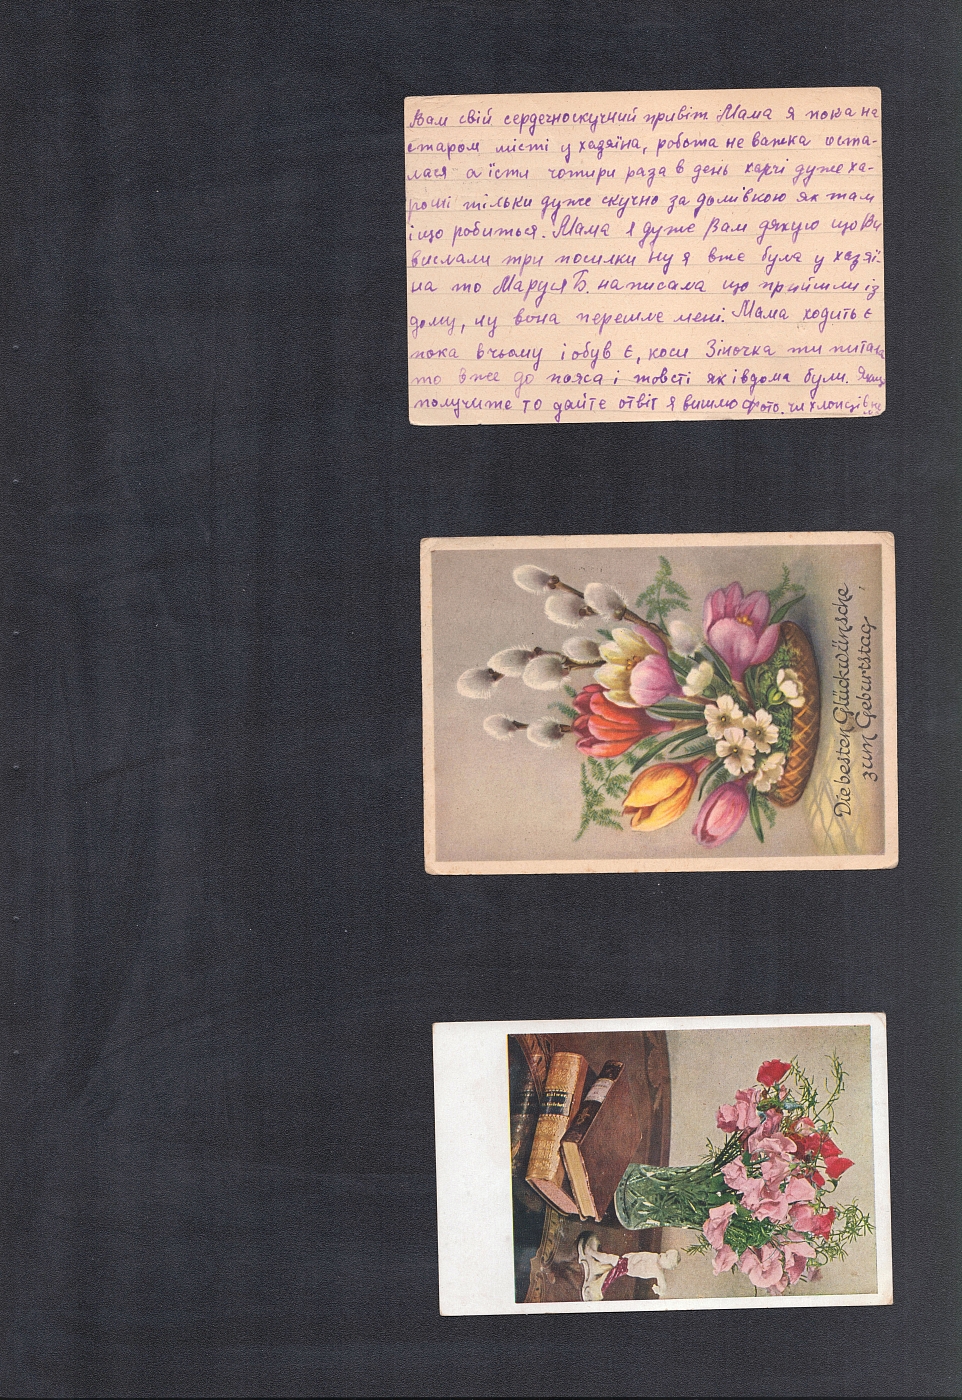 Вам свій сердечноскучний привіт Мама я пока на
старом місті у хазяїна, робота не важка оста-
лася а їсти чотири раза в день харчі дуже ха-
роші тільки дуже скучно за домівкою як там
і що робиться. Мама я дуже Вам дякую що Ви
вислали три посилки ну я вже була у хазяї-
на то Маруся Б. написала що прийшли із
дому, ну вона перешле мені. Мама ходить є
пока вчьому і обув є, коси Зіночка ти питала
то вже до пояса і товсті як івдома були. Якщо
получите то дайте отвіт я вишлю фото. чи хлопців не
Die besten Glückwünsche
zum Geburtstag!